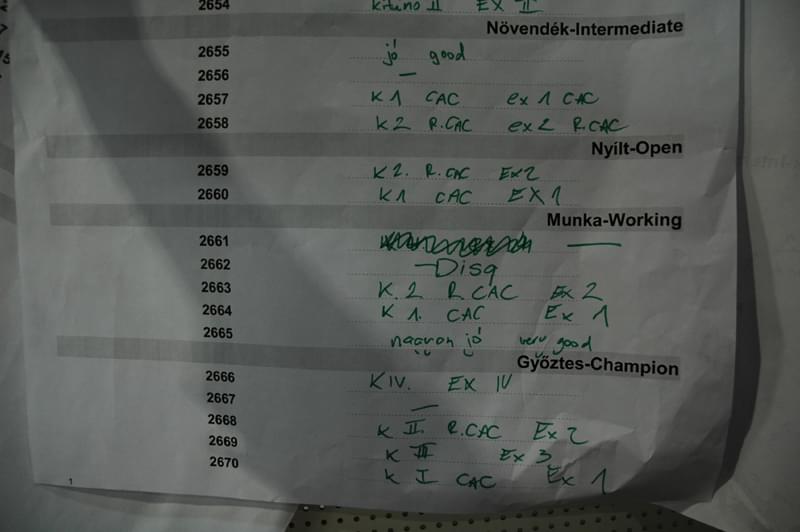 2654 kitűnő II EX II
Növendék-Intermediate
2655 jó good
2656 —
2657 K 1 CAC ex 1 CAC
2658 K 2 R.CAC ex 2 R.CAC
Nyílt-Open
2659 K 2. R.CAC Ex 2
2660 K 1 CAC EX 1
Munka-Working
2661 —
2662 — Disq
2663 K. 2 R.CAC Ex 2
2664 K 1. CAC Ex 1
2665 nagyon jó very good
Győztes-Champion
2666 K IV. EX IV
2667 —
2668 K II. R.CAC Ex 2
2669 K III Ex 3
2670 K I CAC Ex 1
1